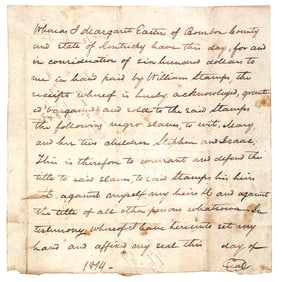 Whereas I Margaret Easter of Bourbon County
and state of Kentucky have this day, for and
in consideration of six hundred dollars to
me in hand paid by William Stamps the
receipts whereof is hereby acknowledged, granted
bargained and sold to the said Stamps
the following negro slaves, to wit, Mary
and her two children Stephen and Isaac,
This is therefore to warrant and defend the
title to said slaves to said Stamps his heirs
against myself my heirs and against
the title of all other persons whatsoever In
testimony whereof I have hereunto set my
hand and affixed my seal this day of
1814 - Seal